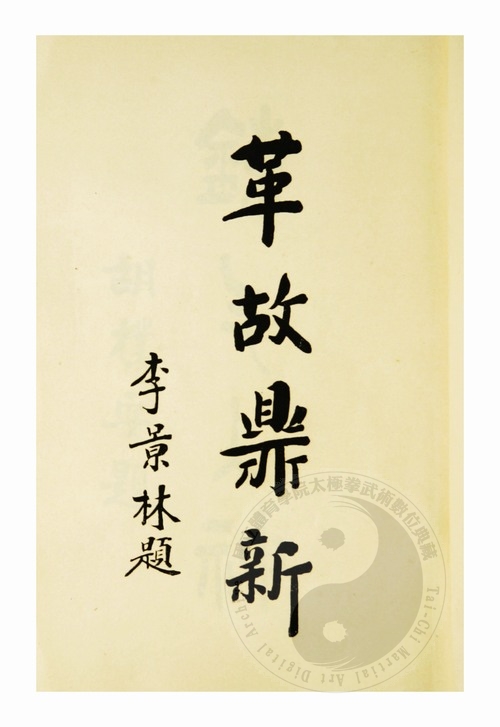 革故鼎新
李景林題
體育學院太極拳武術數位典藏
Tai-Chi Martial Art Digital Arch